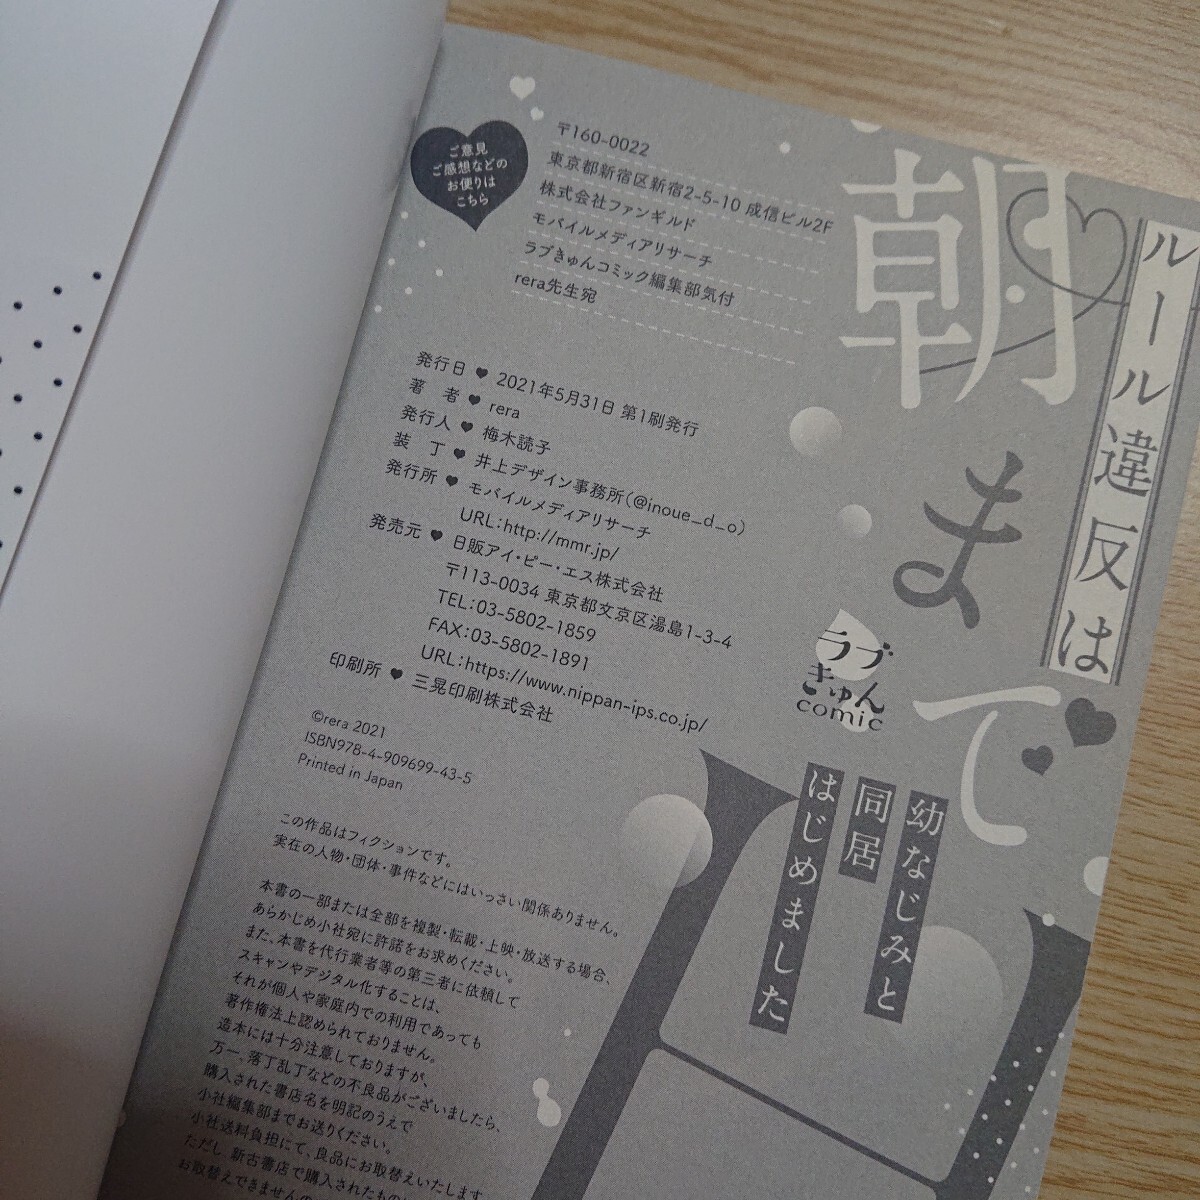 ルール違反は
朝まで
幼なじみと
同居
はじめました
ラブ
きゅん
comic
ご意見
ご感想などの
お便りは
こちら
〒160-0022
東京都新宿区新宿2-5-10 成信ビル2F
株式会社ファンギルド
モバイルメディアリサーチ
ラブきゅんコミック編集部気付
rera先生宛
発行日 ♥ 2021年5月31日 第1刷発行
著 者 ♥ rera
発行人 ♥ 梅木読子
装 丁 ♥ 井上デザイン事務所(@inoue_d_o)
発行所 ♥ モバイルメディアリサーチ
URL:http://mmr.jp/
発売元 ♥ 日販アイ・ピー・エス株式会社
〒113-0034 東京都文京区湯島1-3-4
TEL:03-5802-1859
FAX:03-5802-1891
URL:https://www.nippan-ips.co.jp/
印刷所 ♥ 三晃印刷株式会社
©rera 2021
ISBN978-4-909699-43-5
Printed in Japan
この作品はフィクションです。
実在の人物・団体・事件などにはいっさい関係ありません。
本書の一部または全部を複製・転載・上映・放送する場合、
あらかじめ小社宛に許諾をお求めください。
また、本書を代行業者等の第三者に依頼して
スキャンやデジタル化することは、
それが個人や家庭内での利用であっても
著作権法上認められておりません。
造本には十分注意しておりますが、
万一、落丁乱丁などの不良品がございましたら、
購入された書店名を明記のうえで
小社編集部までお送りください。
小社送料負担にて、良品にお取替えいたします
ただし、新古書店で購入されたものに
お取替えできませんの